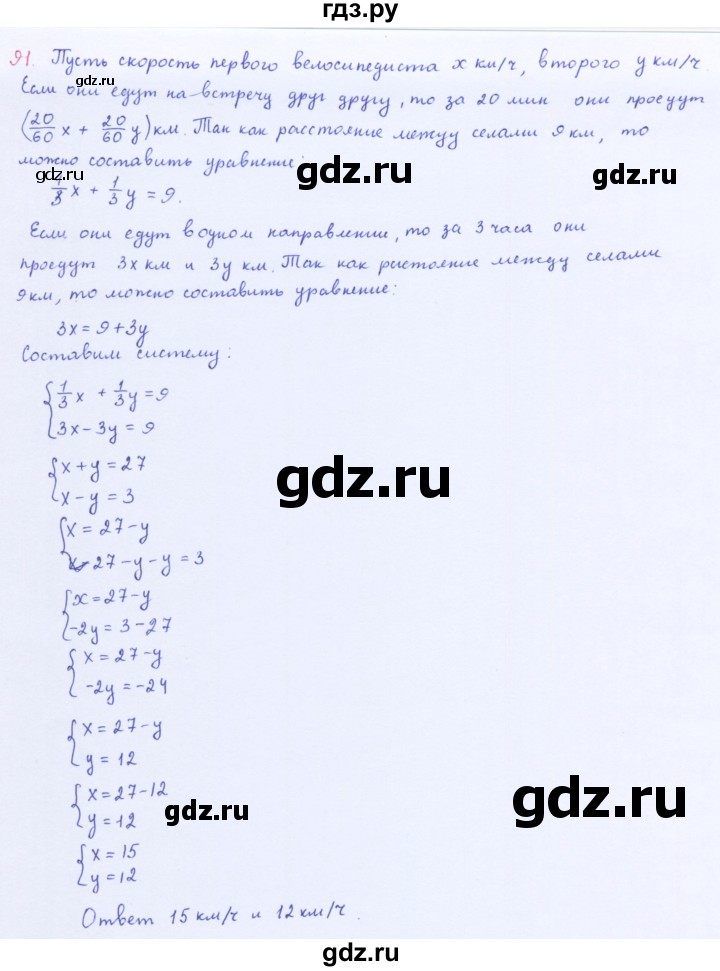 гдз.ру
91. Пусть скорость первого велосипедиста x км/ч, второго y км/ч.
gdz.ru
Если они едут на-встречу друг другу, то за 20 мин они проедут
(20/60 x + 20/60 y) км. Так как расстояние между селами 9 км, то
можно составить уравнение:
gdz.ru
gdz.ru
gdz.ru
1/3 x + 1/3 y = 9.
Если они едут в одном направлении, то за 3 часа они
проедут 3x км и 3y км. Так как растояние между селами
9 км, то можно составить уравнение:
3x = 9 + 3y
Составим систему:
{ 1/3 x + 1/3 y = 9
3x - 3y = 9
{ x + y = 27
x - y = 3
gdz.ru
{ x = 27 - y
27 - y - y = 3
{ x = 27 - y
-2y = 3 - 27
{ x = 27 - y
-2y = -24
{ x = 27 - y
y = 12
{ x = 27 - 12
y = 12
gdz.ru
gdz.ru
{ x = 15
y = 12
Ответ 15 км/ч и 12 км/ч.
gdz.ru